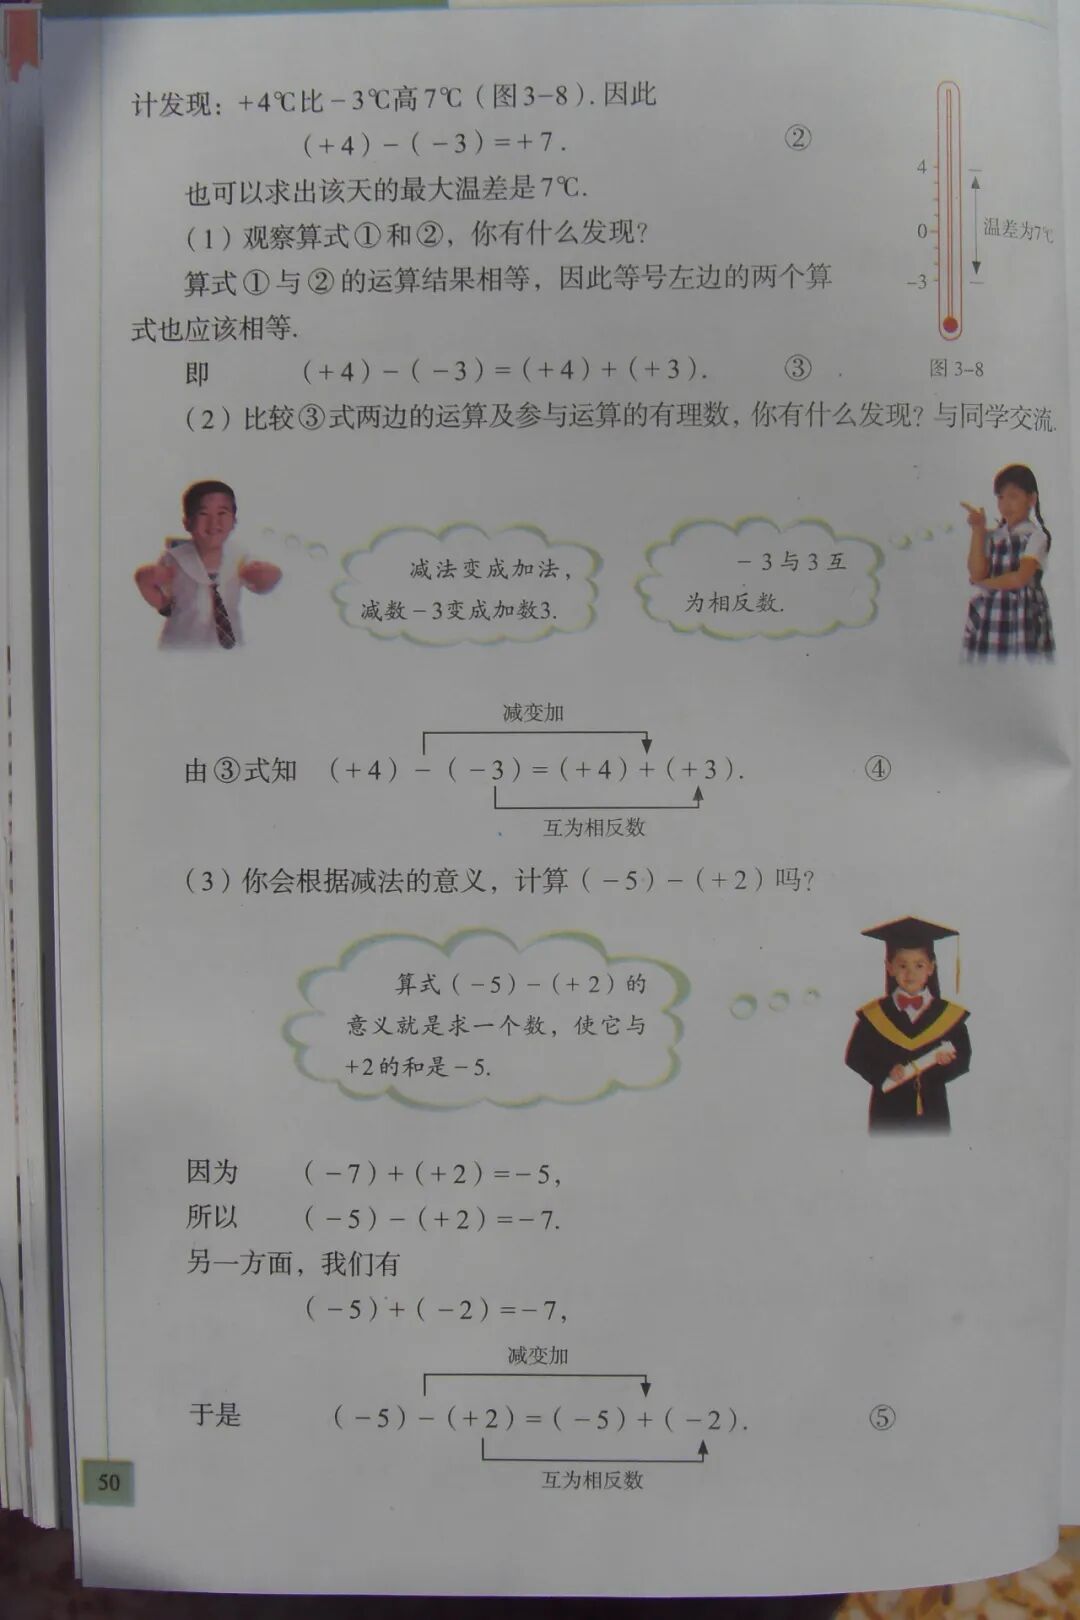 计发现：+4℃比－3℃高7℃（图3-8）.因此
（+4）－（－3）=+7. ②
也可以求出该天的最大温差是7℃.
（1）观察算式①和②，你有什么发现？
算式①与②的运算结果相等，因此等号左边的两个算
式也应该相等.
即 （+4）－（－3）=（+4）+（+3）. ③
4
0
-3
温差为7℃
图 3-8
（2）比较③式两边的运算及参与运算的有理数，你有什么发现？与同学交流.
减法变成加法，
减数－3变成加数3.
－3与3互
为相反数.
减变加
由③式知 （+4）－（－3）=（+4）+（+3）. ④
互为相反数
（3）你会根据减法的意义，计算（－5）－（+2）吗？
算式（－5）－（+2）的
意义就是求一个数，使它与
+2的和是－5.
因为 （－7）+（+2）=－5，
所以 （－5）－（+2）=－7.
另一方面，我们有
（－5）+（－2）=－7，
减变加
于是 （－5）－（+2）=（－5）+（－2）. ⑤
互为相反数
50